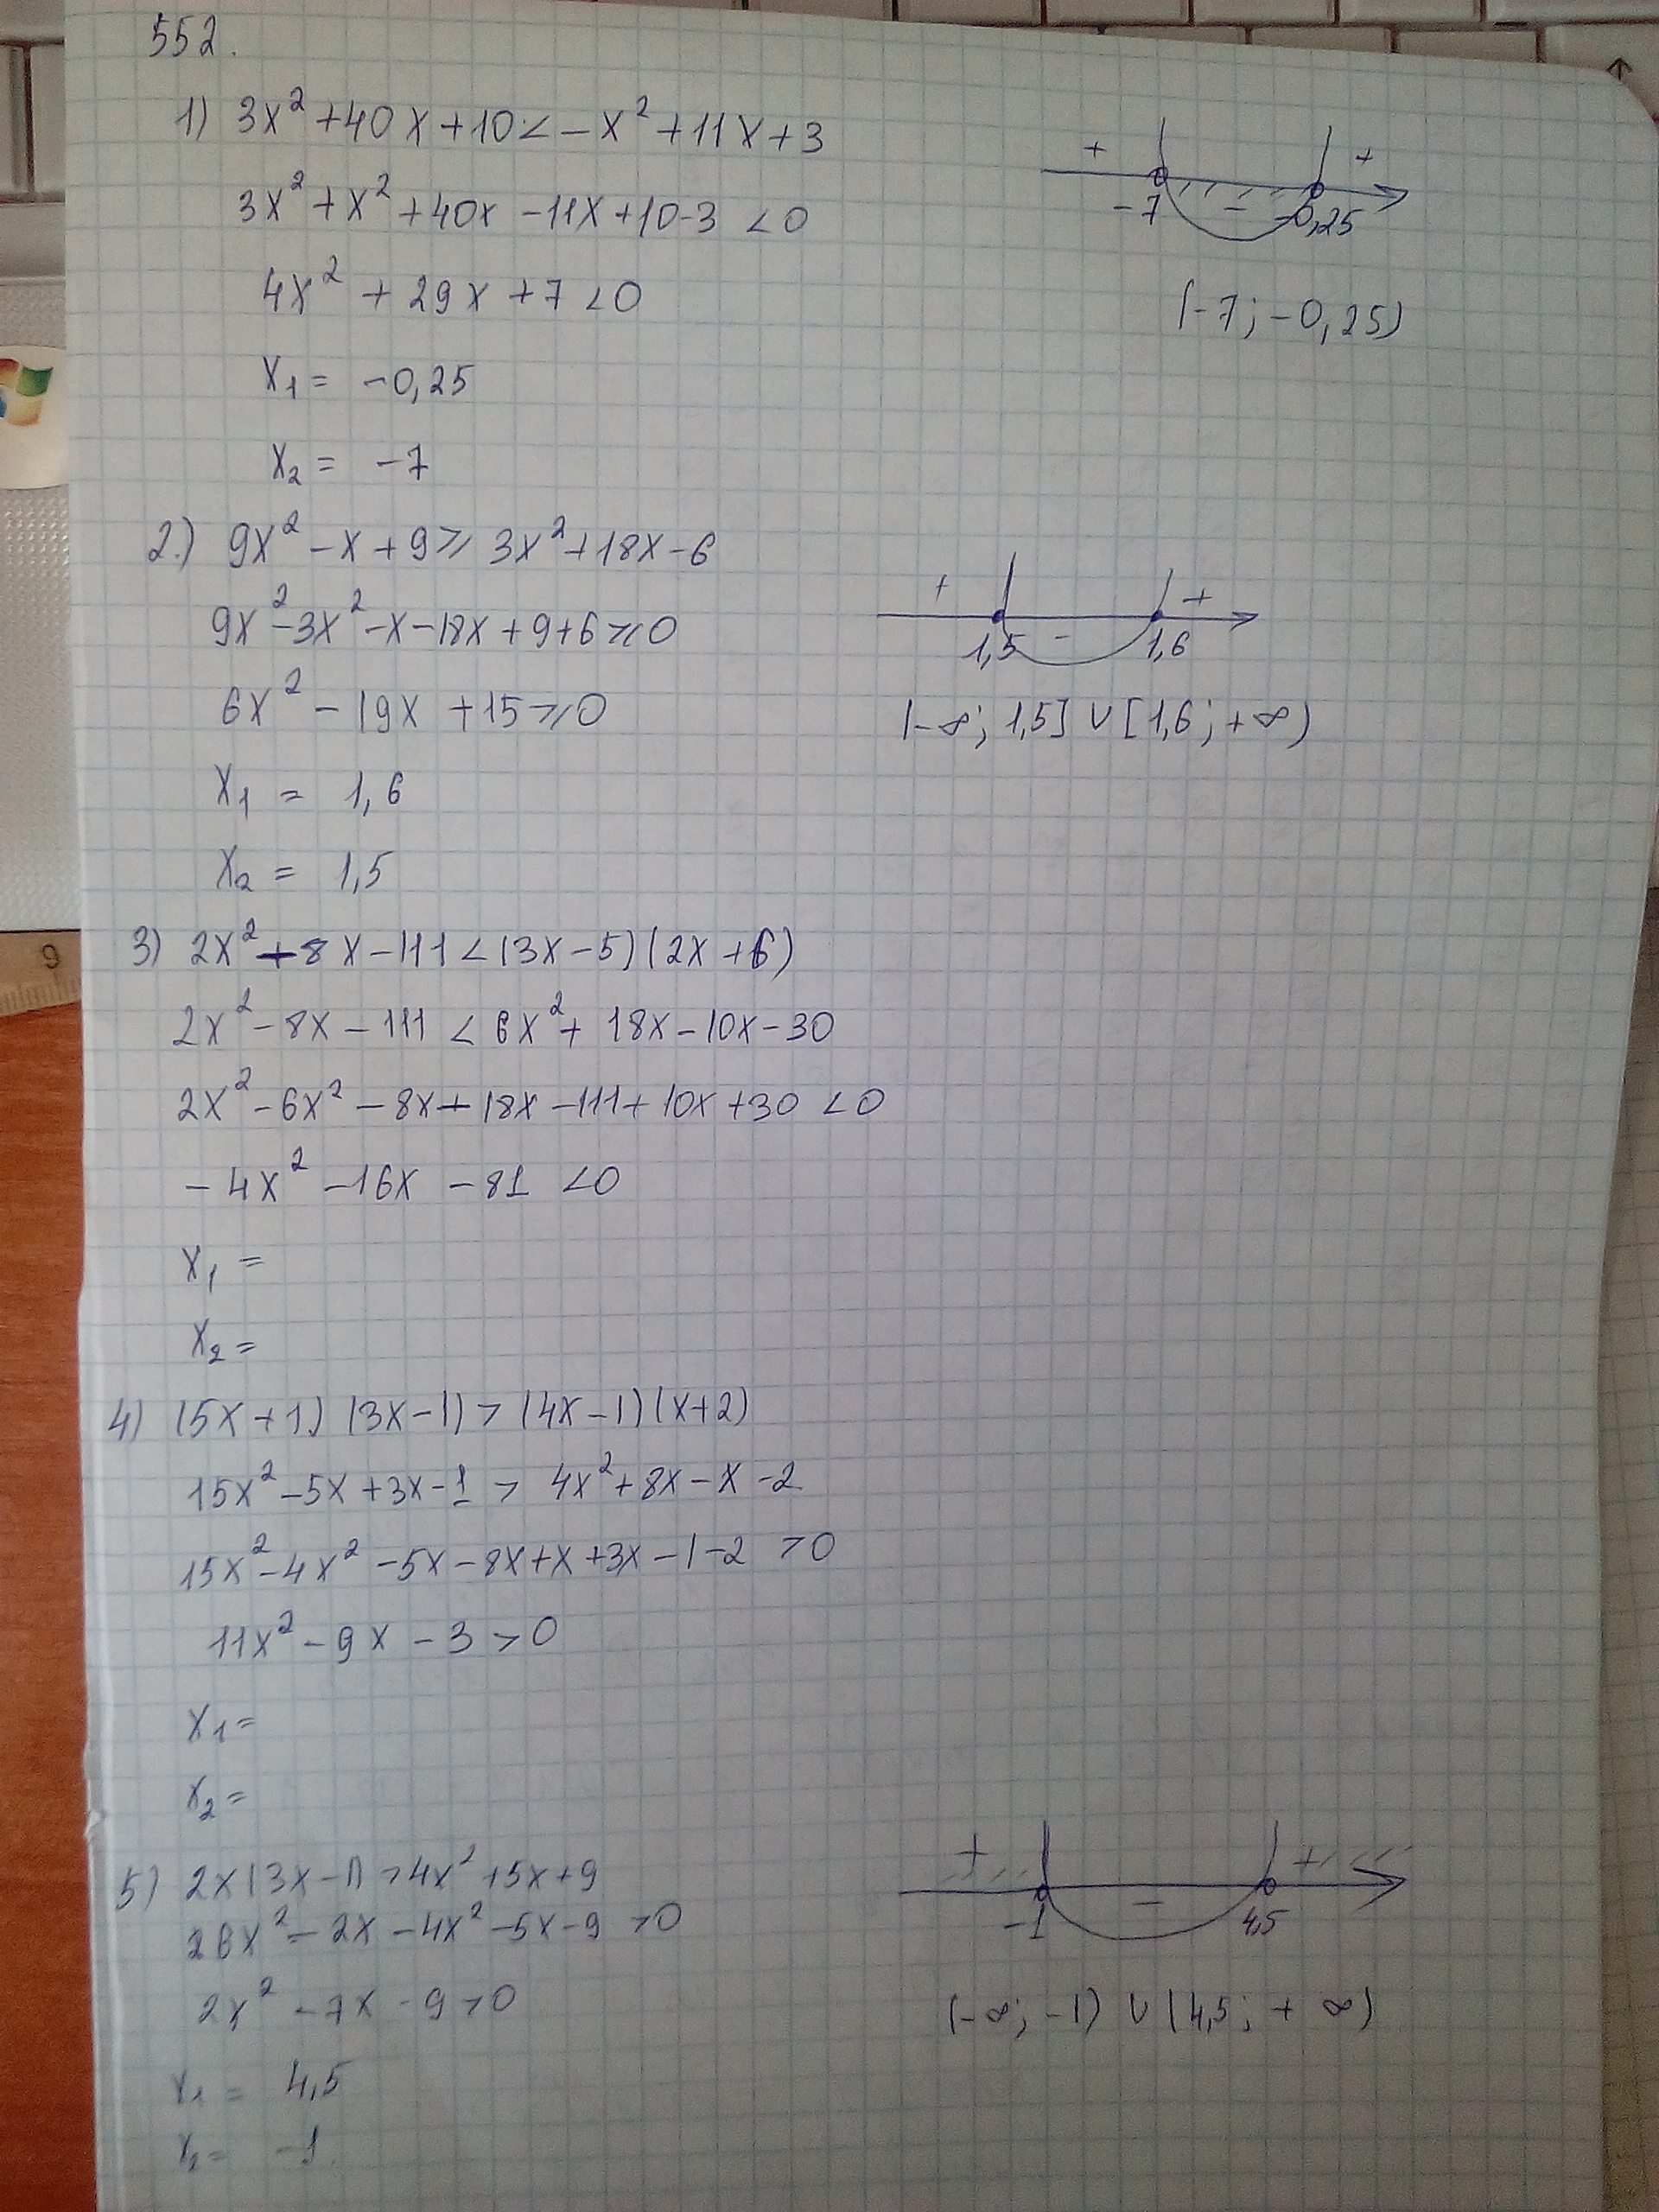 552.
1) 3x² + 40x + 10 < -x² + 11x + 3
3x² + x² + 40x - 11x + 10 - 3 < 0
4x² + 29x + 7 < 0
x₁ = -0,25
x₂ = -7
+ +
-7 - -0,25
(-7; -0,25)
2.) 9x² - x + 9 ⩾ 3x² + 18x - 6
9x² - 3x² - x - 18x + 9 + 6 ⩾ 0
6x² - 19x + 15 ⩾ 0
x₁ = 1,6
x₂ = 1,5
+ +
1,5 - 1,6
(-∞; 1,5] ∪ [1,6; +∞)
3) 2x² + 8x - 111 < (3x - 5)(2x + 6)
2x² - 8x - 111 < 6x² + 18x - 10x - 30
2x² - 6x² - 8x - 18x - 111 + 10x + 30 < 0
-4x² - 16x - 81 < 0
x₁ =
x₂ =
4) (5x + 1)(3x - 1) > (4x - 1)(x + 2)
15x² - 5x + 3x - 1 > 4x² + 8x - x - 2
15x² - 4x² - 5x - 8x + x + 3x - 1 - 2 > 0
11x² - 9x - 3 > 0
x₁ =
x₂ =
5) 2x(3x - 1) > 4x² + 5x + 9
26x² - 2x - 4x² - 5x - 9 > 0
2x² - 7x - 9 > 0
x₁ = 4,5
x₂ = -1
+ +
-1 - 4,5
(-∞; -1) ∪ (4,5; +∞)
9